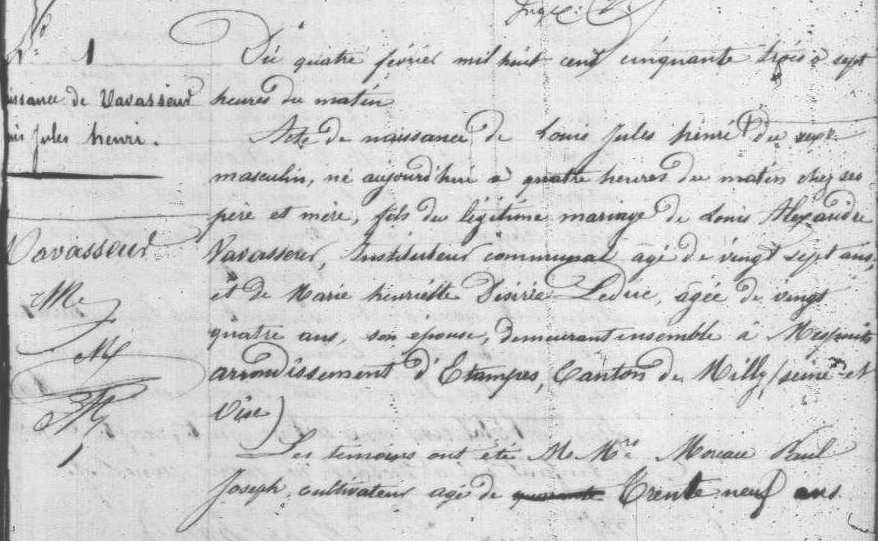 N° 1
issance de Vavasseur
uis jules henri.
Vavasseur
Du quatre février mil huit cent cinquante trois à sept
heures du matin
Acte de naissance de Louis Jules henri du sexe
masculin, né aujourd'hui à quatre heures du matin chez ses
père et mère, fils du légitime mariage de Louis Alexandre
Vavasseur, Instituteur communal agé de vingt sept ans,
et de Marie henriette Désirée Leduc, agée de vingt
quatre ans, son epouse, demeurant ensemble à Mespuits
arrondissement d'Etampes, Canton de Milly (seine et
Oise)
Les temoins ont été M. Mrs Moreau Paul
Joseph, cultivateur agé de quarante Trente neuf ans